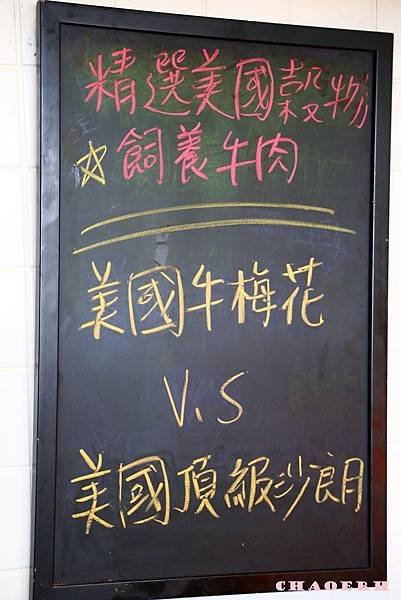 精選美國穀物
☆飼養牛肉
美國牛梅花
V.S
美國頂級沙朗
CHAOERH